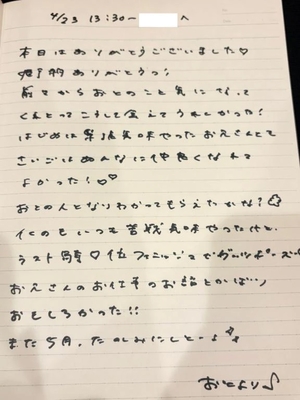 4/23 13:30〜 へ
本日はありがとうございました♡
予約ありがとうっ!
前々からおとのこと気になって
くれとってこうして会えてうれしかった!
はじめは緊張気味やったおえさんとて
さいごはあんなに仲良くなれて
よかった!♡♡
おとの人となりわかってもらえたかな?
イくのもいつも苦戦気味やったけど、
ラスト騎♡位フィニッシュでガッツポーズ
おえさんのお仕事のお話とかぱ…、
おもしろかった!!
また5月、たのしみにしとーよ
おとより♪